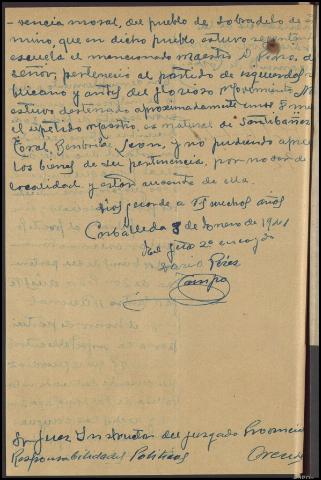 -vencia moral, del pueblo de Sobradelo de
mino, que en dicho pueblo estuvo
escuela el mencionado maestro D.
señor, pertenecio al partido de izquierda
blicano y antes del glorioso movimiento
estuvo destinado aproximadamente unos
el repetido maestro, es natural de Santibañez
Leon, y no pudiendo
los bienes de su pertinencia, por no ser de
localidad y estar ausente de ella.
Dios guarde a V. muchos años
Corbaleda 8 de Enero de 1941
El Gefe
Dario Perez
Campo
Sr. Juez Instructor del juzgado Provincia
Responsabilidades Politicas Orense